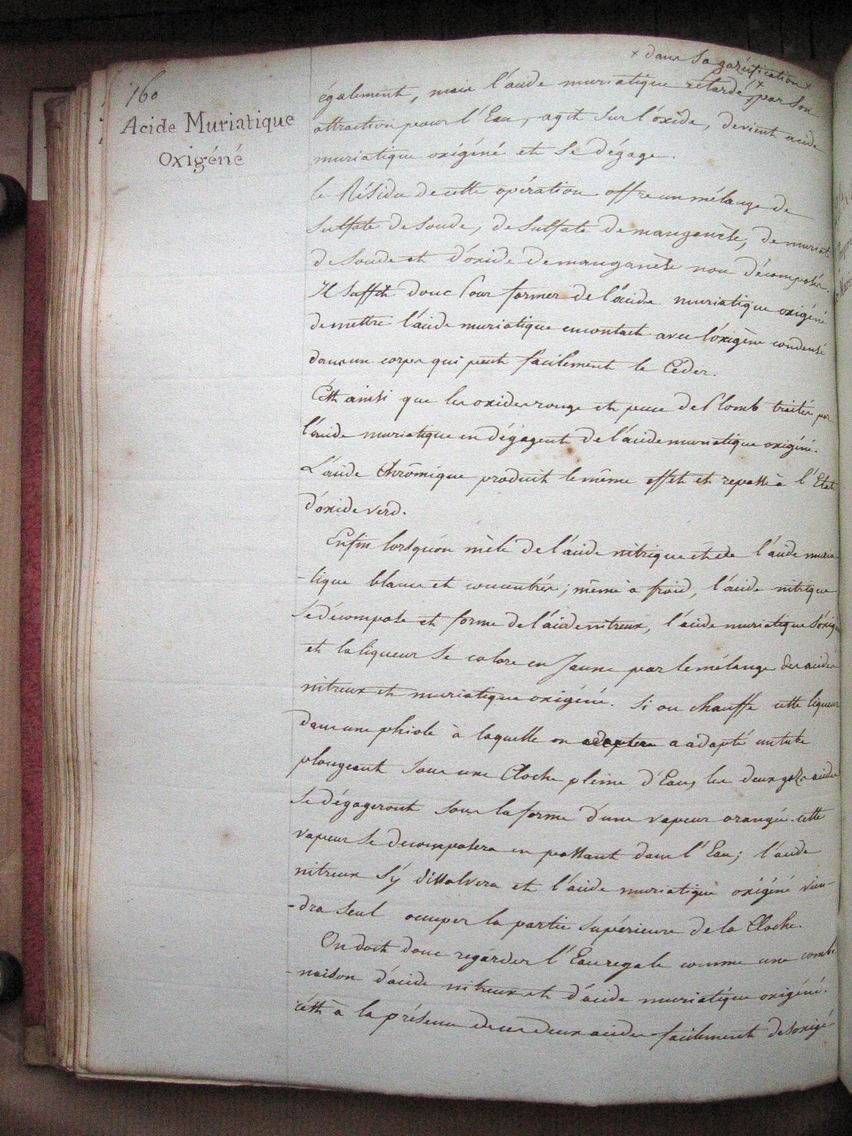 160
Acide Muriatique
Oxigéné
× dans sa gazéification ×
également, mais l'acide muriatique retardé × par son
attraction pour l'Eau, agit sur l'oxide, devient acide
muriatique oxigéné et se dégage.
le Résidu de cette opération offre un mélange de
sulfate de soude, de sulfate de manganèse, de muriat
de soude et d'oxide de manganèse non décomposé.
Il suffit donc pour former de l'acide muriatique oxigéné
de mettre l'acide muriatique en contact avec l'oxigène condensé
dans un corps qui peut facilement le Céder.
C'est ainsi que les oxides rouge et puce de Plomb traités par
l'acide muriatique en dégagent de l'acide muriatique oxigéné.
L'acide Chrômique produit le même effet et repasse à l'Etat
d'oxide verd.
Enfin lorsqu'on mêle de l'acide nitrique et de l'acide muria
-tique blancs et concentrés; même à froid, l'acide nitrique
se décompose et forme de l'acide nitreux, l'acide muriatique s'oxig
et la liqueur se colore en Jaune par le mélange des acides
nitreux et muriatique oxigéné. Si on chauffe cette liqueur
dans une phiole à laquelle on adaptera a adapté un tube
plongeant sous une Cloche pleine d'Eau, les deux gaz acides
se dégageront sous la forme d'une vapeur orangée. cette
vapeur se décomposera en passant dans l'Eau; l'acide
nitreux s'y dissolvera et l'acide muriatique oxigéné vien-
-dra seul occuper la partie supérieure de la Cloche.
On doit donc regarder l'Eau regale comme une combi
-naison d'acide nitreux et d'acide muriatique oxigéné.
c'est à la présence de ces deux acides facilement desoxigé-